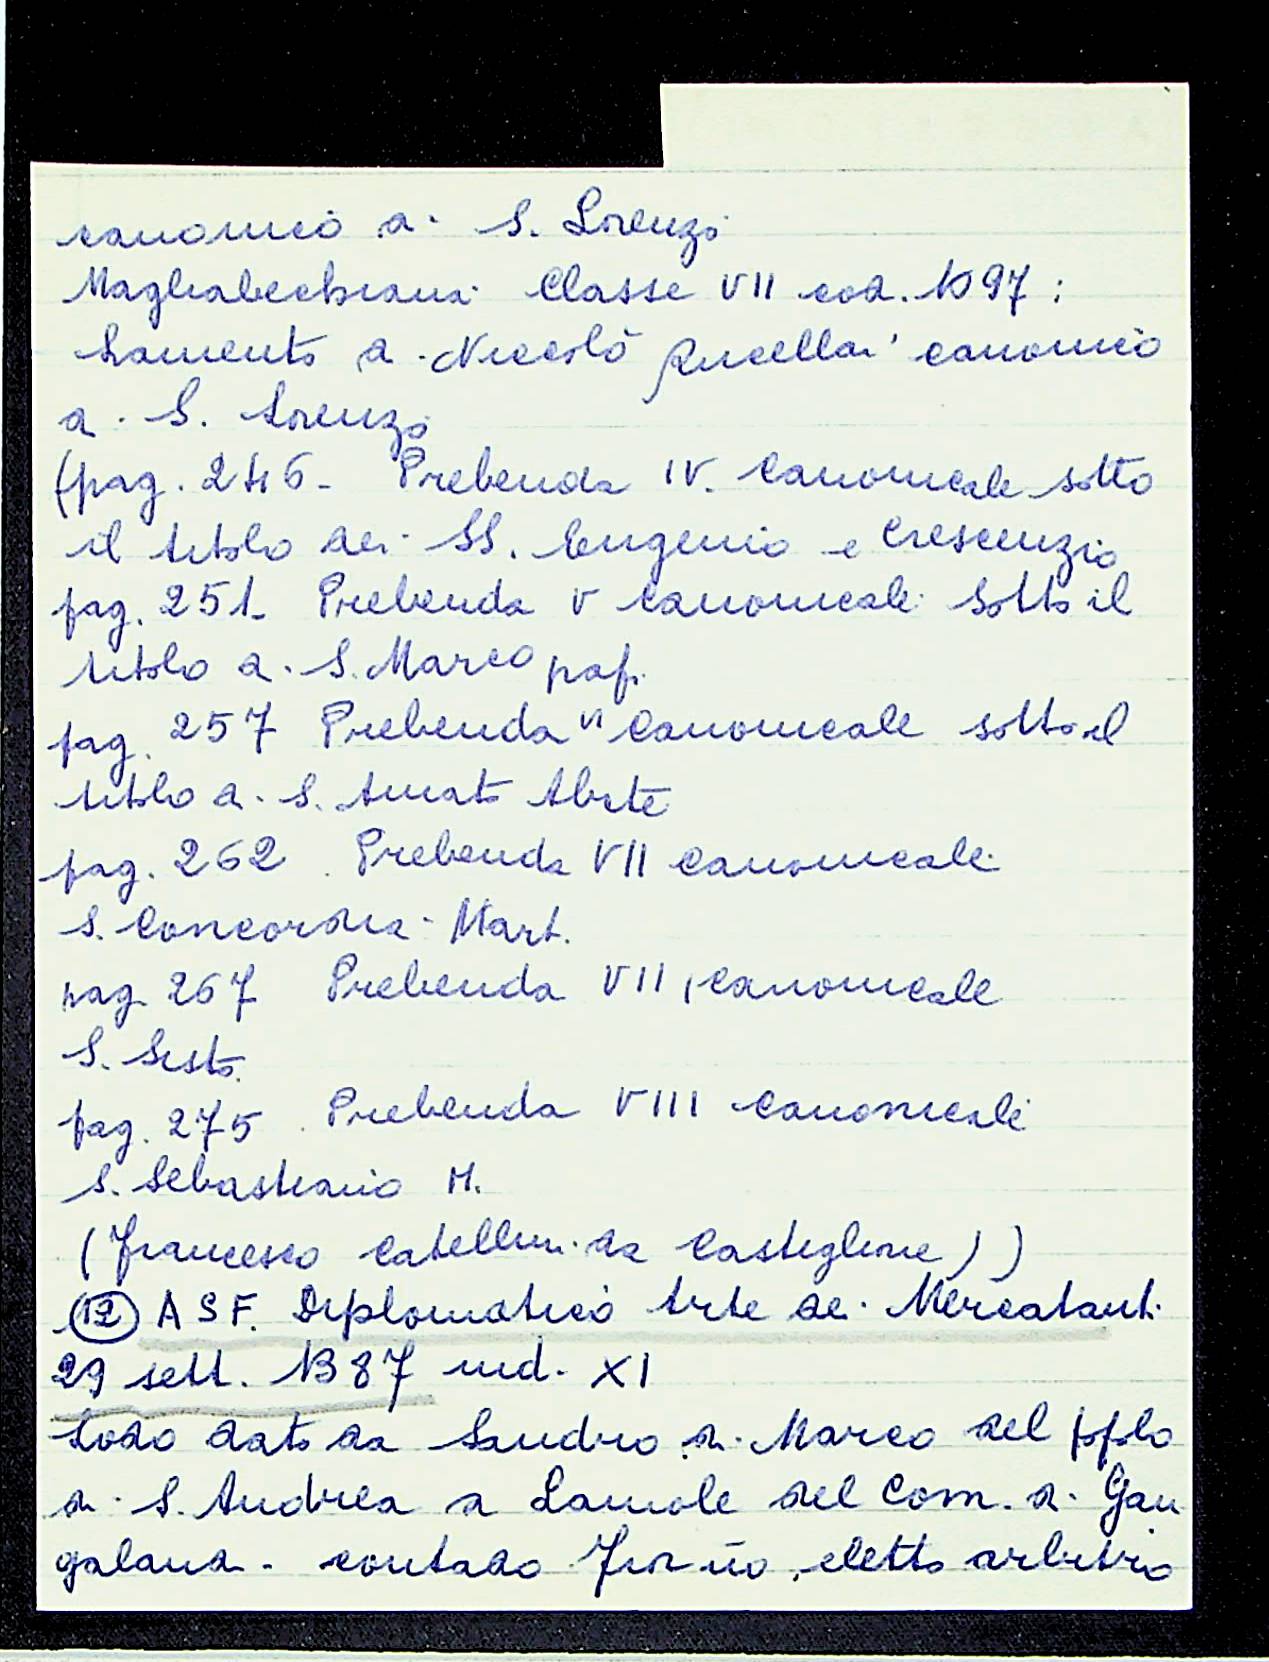 canonico di S. Lorenzo
Magliabechiana Classe VII cod. 1097:
Lamento di Niccolò Rucellai canonico
di S. Lorenzo
(pag. 246 - Prebenda IV canonicale sotto
il titolo dei SS. Eugenio e Crescenzio
pag. 251 - Prebenda V canonicale sotto il
titolo di S. Marco pap.
pag. 257 Prebenda VI canonicale sotto il
titolo di S. Amato Abate
pag. 262. Prebenda VII canonicale
S. Concordia Mart.
pag. 267 Prebenda VII canonicale
S. Sisto
pag. 275. Prebenda VIII canonicale
S. Sebastiano M.
(Francesco Catellini da Castiglione))
(12) ASF. Diplomatico Arte dei Mercatanti
29 sett. 1387 ind. XI
Lodo dato da Sandro di Marco del popolo
di S. Andrea a Lamole del Com. di Gan
galandi - contado eletto arbitrio